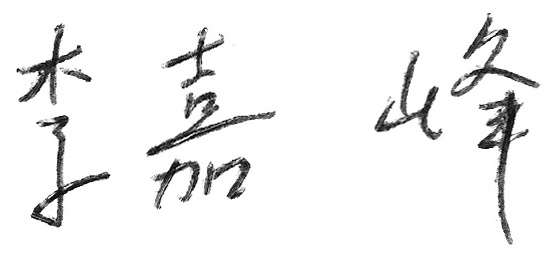 李嘉峰